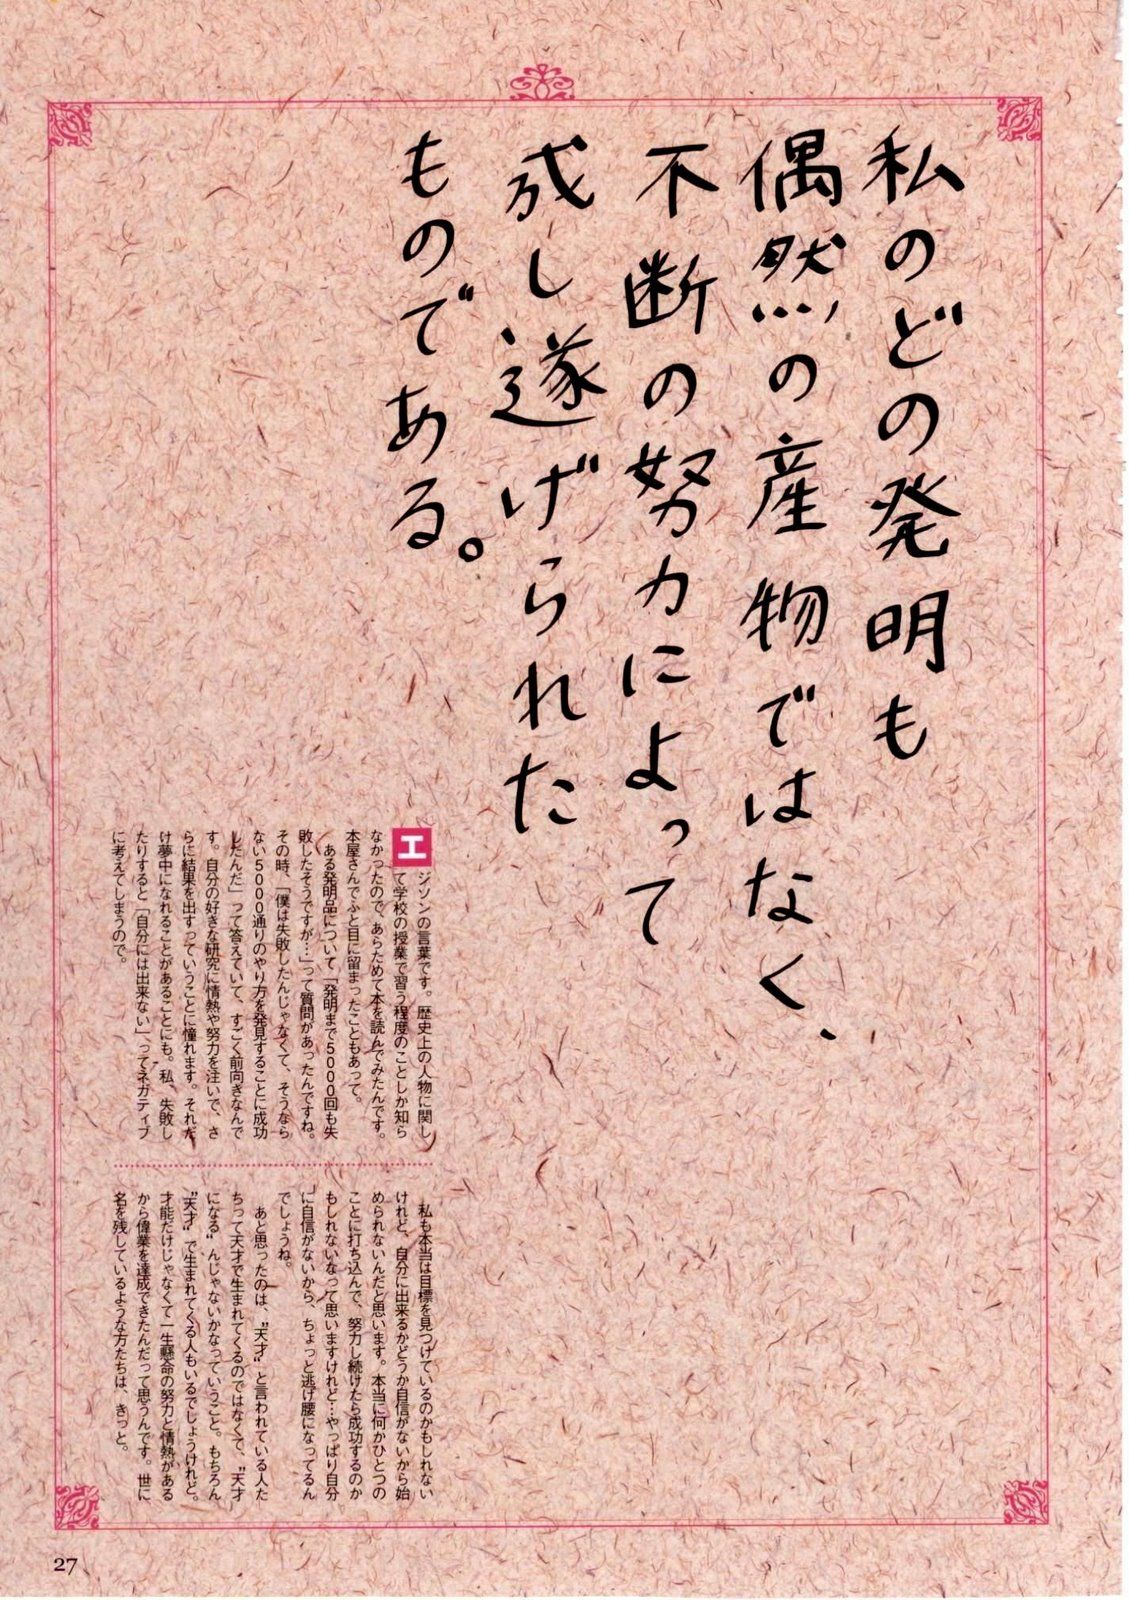 私のどの発明も
偶然の産物ではなく、
不断の努力によって
成し遂げられた
ものである。
エジソンの言葉です。歴史上の人物に関し
て学校の授業で習う程度のことしか知ら
なかったので、あらためて本を読んでみたんです。
本屋さんでふと目に留まったこともあって。
ある発明品について「発明まで5000回も失
敗したそうですが…」って質問があったんですね。
その時、「僕は失敗したんじゃなくて、そうなら
ない5000通りのやり方を発見することに成功
したんだ」って答えていて、すごく前向きなんで
す。自分の好きな研究に情熱や努力を注いで、さ
らに結果を出すっていうことに憧れます。それだ
け夢中になれることがあることにも。私、失敗し
たりすると「自分には出来ない」、ってネガティブ
に考えてしまうので。
私も本当は目標を見つけているのかもしれない
けれど、自分に出来るかどうか自信がないから始
められないんだと思います。本当に何かひとつの
ことに打ち込んで、努力し続けたら成功するのか
もしれないなって思いますけれど…やっぱり自分
に自信がないから、ちょっと逃げ腰になってるん
でしょうね。
あと思ったのは、“天才”と言われている人た
ちって天才で生まれてくるのではなくて、“天才
になる”んじゃないかなっていうこと。もちろん
“天才”で生まれてくる人もいるでしょうけれど。
才能だけじゃなくて一生懸命の努力と情熱がある
から偉業を達成できたんだって思うんです。世に
名を残しているような方たちは、きっと。
27